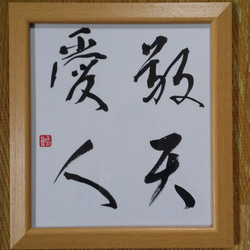 敬天
愛人